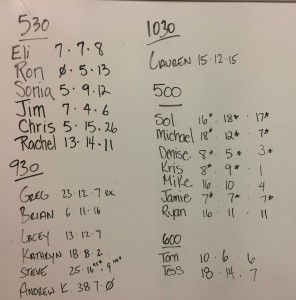 530
Eli 7·7·8
Ron Ø·5·13
Sonia 5·9·12
Jim 7·4·6
Chris 5·15·26
Rachel 13·14·11
930
GREG 23·12·7 RX
BRIAN 6·11·16
LACEY 13·12·7
KATHRYN 18·8·2
STEVE 25·16***·9
ANDREW K. 38·7·Ø
1030
LAUREN 15·12·15
500
Sol 16*·18*·17*
Michael 18*·12*·7*
Denise 8*·5*·3*
Kris 8*·9*·1
Mike 16 10 4
Jamie 7*·7*·7*
Ryan 16·11·11
600
Tom 10·6·6
Tess 18·14·7